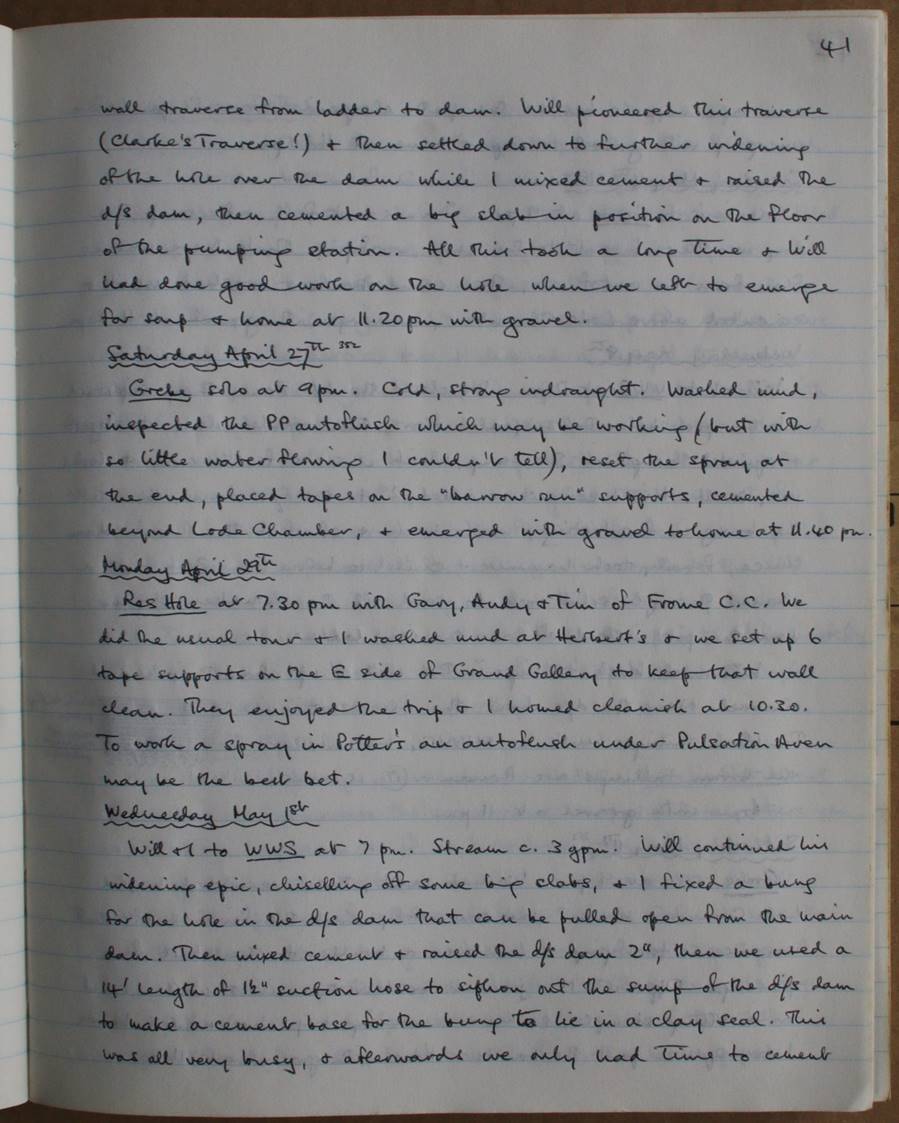 41
wall traverse from ladder to dam. Will pioneered this traverse
(Clarke's Traverse!) & then settled down to further widening
of the hole over the dam while I mixed cement & raised the
d/s dam, then cemented a big slab in position on the floor
of the pumping station. All this took a long time & Will
had done good work on the hole when we left to emerge
for soup & home at 11.20pm with gravel.
Saturday April 27th 352
Grebe solo at 9pm. Cold, strong indraught. Washed mud,
inspected the PP autoflush which may be working (but with
so little water flowing I couldn't tell), reset the spray at
the end, placed tapes on the "barrow run" supports, cemented
beyond Lode Chamber, & emerged with gravel to home at 11.40 pm.
Monday April 29th
Res Hole at 7.30 pm with Gary, Andy & Tim of Frome C.C. We
did the usual tour & I washed mud at Herbert's & we set up 6
tape supports on the E side of Grand Gallery to keep that wall
clean. They enjoyed the trip & I homed cleanish at 10.30.
To work a spray in Potter's an autoflush under Pulsation Aven
may be the best bet.
Wednesday May 1st
Will & I to WWS at 7 pm. Stream c. 3 gpm. Will continued his
widening epic, chiselling off some big slabs, & I fixed a bung
for the hole in the d/s dam that can be pulled open from the main
dam. Then mixed cement & raised the d/s dam 2", then we used a
14' length of 1½" suction hose to siphon out the sump of the d/s dam
to make a cement base for the bung to lie in a clay seal. This
was all very busy, & afterwards we only had time to cement